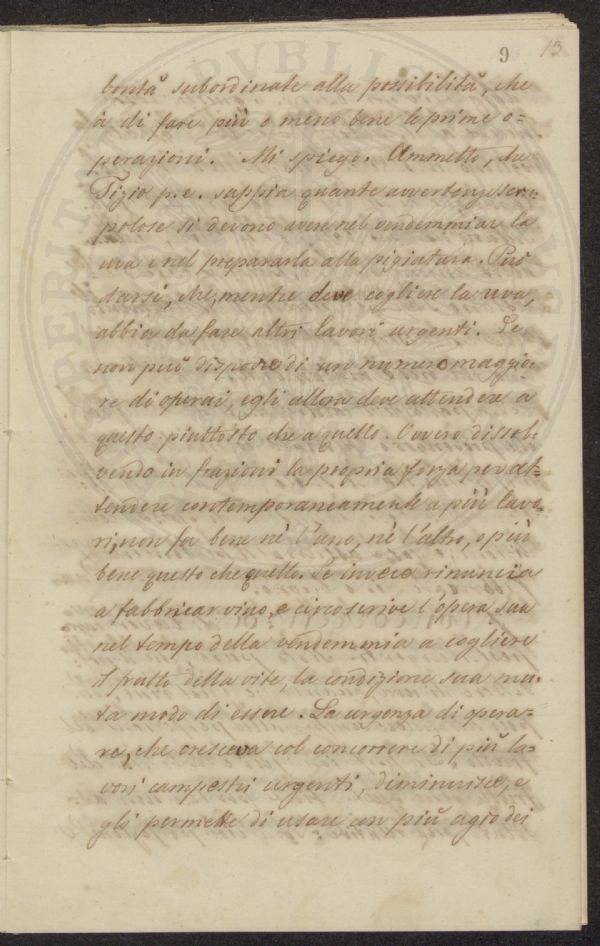 9 13
bontà subordinate alla possibilità, che
à di fare più o meno bene le prime o=
perazioni. Mi spiego. Ammetto, che
Tizio p. e. sappia quante avvertenze scru=
polose si devono avere nel vendemmiar la
uva e nel prepararla alla pigiatura. Può
darsi, che, mentre deve cogliere la uva,
abbia da fare altri lavori urgenti. Se
non può disporre di un numero maggio=
re di operai, egli allora deve attendere a
questo piuttosto che a quello. Ovvero dissol=
vendo in frazioni la propria forza per at=
tendere contemporaneamente a più lavo=
ri, non fa bene nè l'uno, nè l'altro, o più
bene questo che quello. Se invece rinuncia
a fabbricar vino, e circoscrive l'opera sua
nel tempo della vendemmia a cogliere
il frutto della vite, la condizione sua mu=
ta modo di essere. La urgenza di opera=
re, che cresceva col concorrere di più la=
vori campestri urgenti, diminuisce, e
gli permette di usare con più agio dei